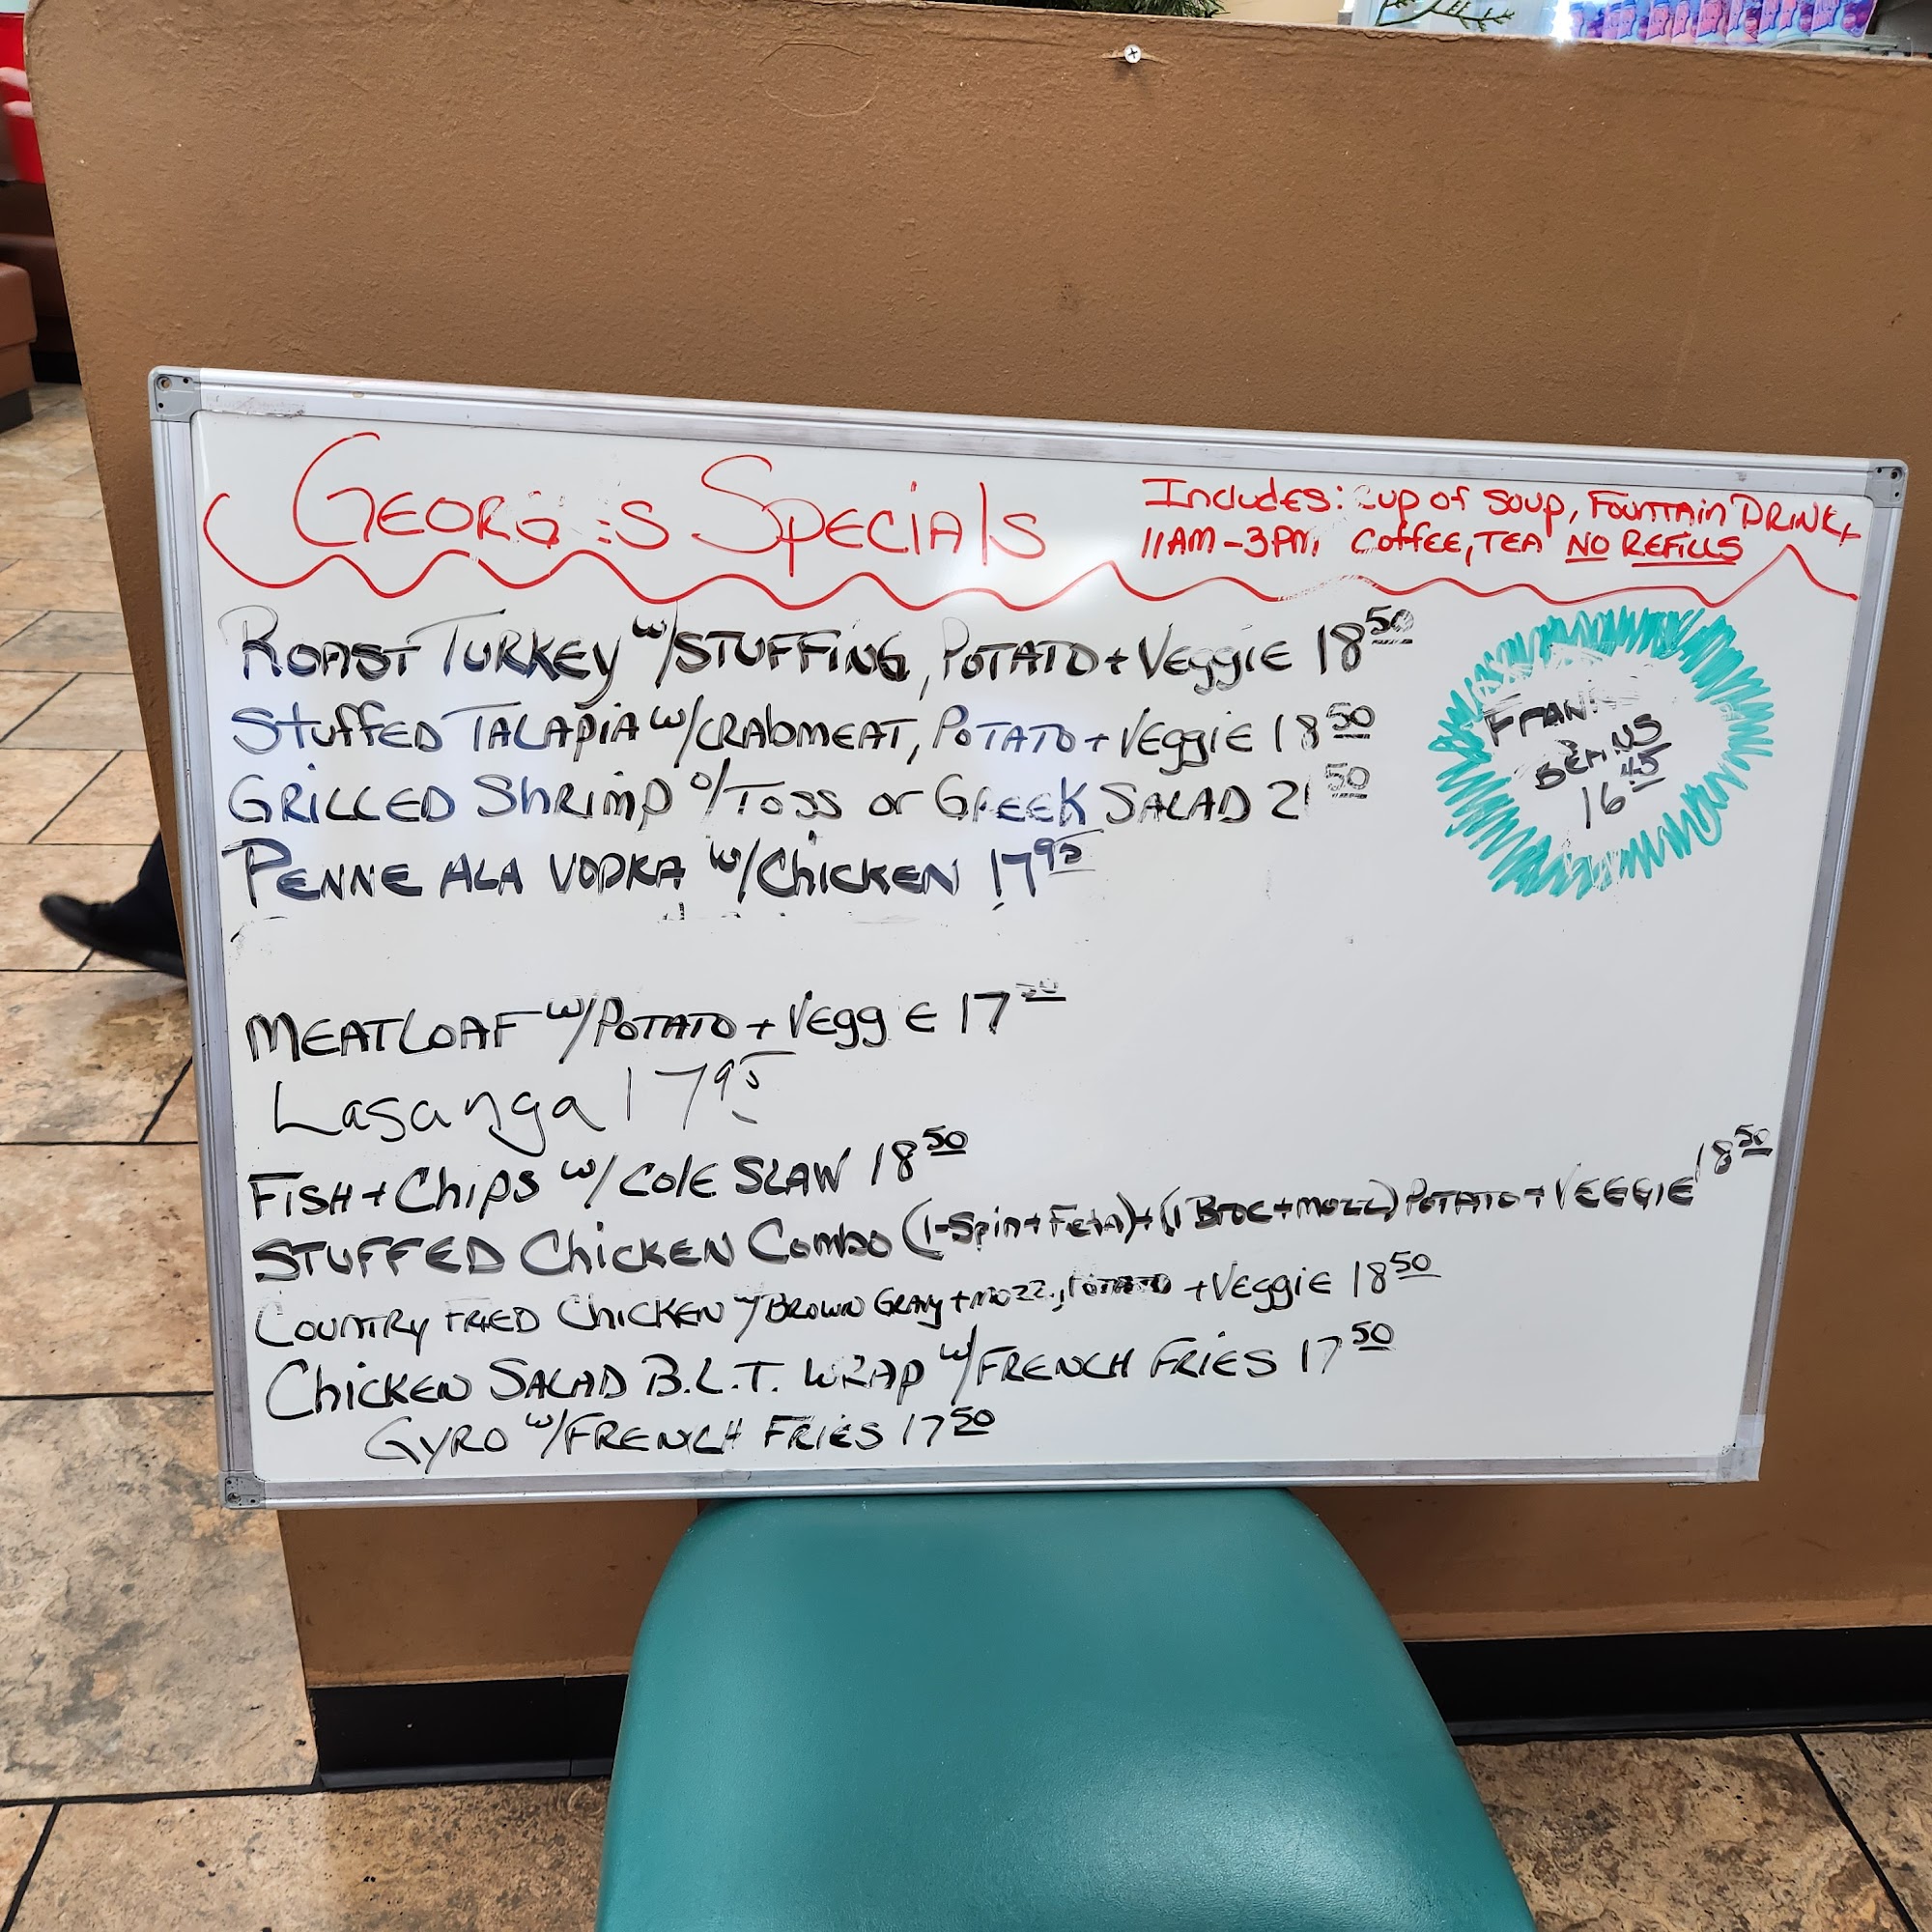 GEORG :s SPECIAlS
Includes: cup of soup, Fountain DRINK,
11AM-3PM Coffee, TEA NO REFILLS
ROAST TURKEY w/STUFFING, POTATO + VeggiE 18 50
StuffED TALAPiA w/CRAbMEAT, POTATO + VeggiE 18 50
GRILLED ShRimp o/TOSS or GREEK SALAD 21 50
PENNE ALA VODKA w/ChickEN 17 95
FRANK
BEANS
16 45
MEATLOAF w/POTATO + VEgg E 17
Lasanga 17 95
FiSH + ChipS w/ColE SLAW 18 50
STUFFED ChicKEN Combo (1-Spin + FetA) + (1 BROC + mozz) POTATO + VEGGIE 18 50
COUNTRY FRIED ChicKEN w/BROWN GRAVY + mozz., POTATO + VeggiE 18 50
ChicKEN SALAD B.L.T. WRAP w/FRENCH FRIES 17 50
GYRO w/FRENCH FRiES 17 50